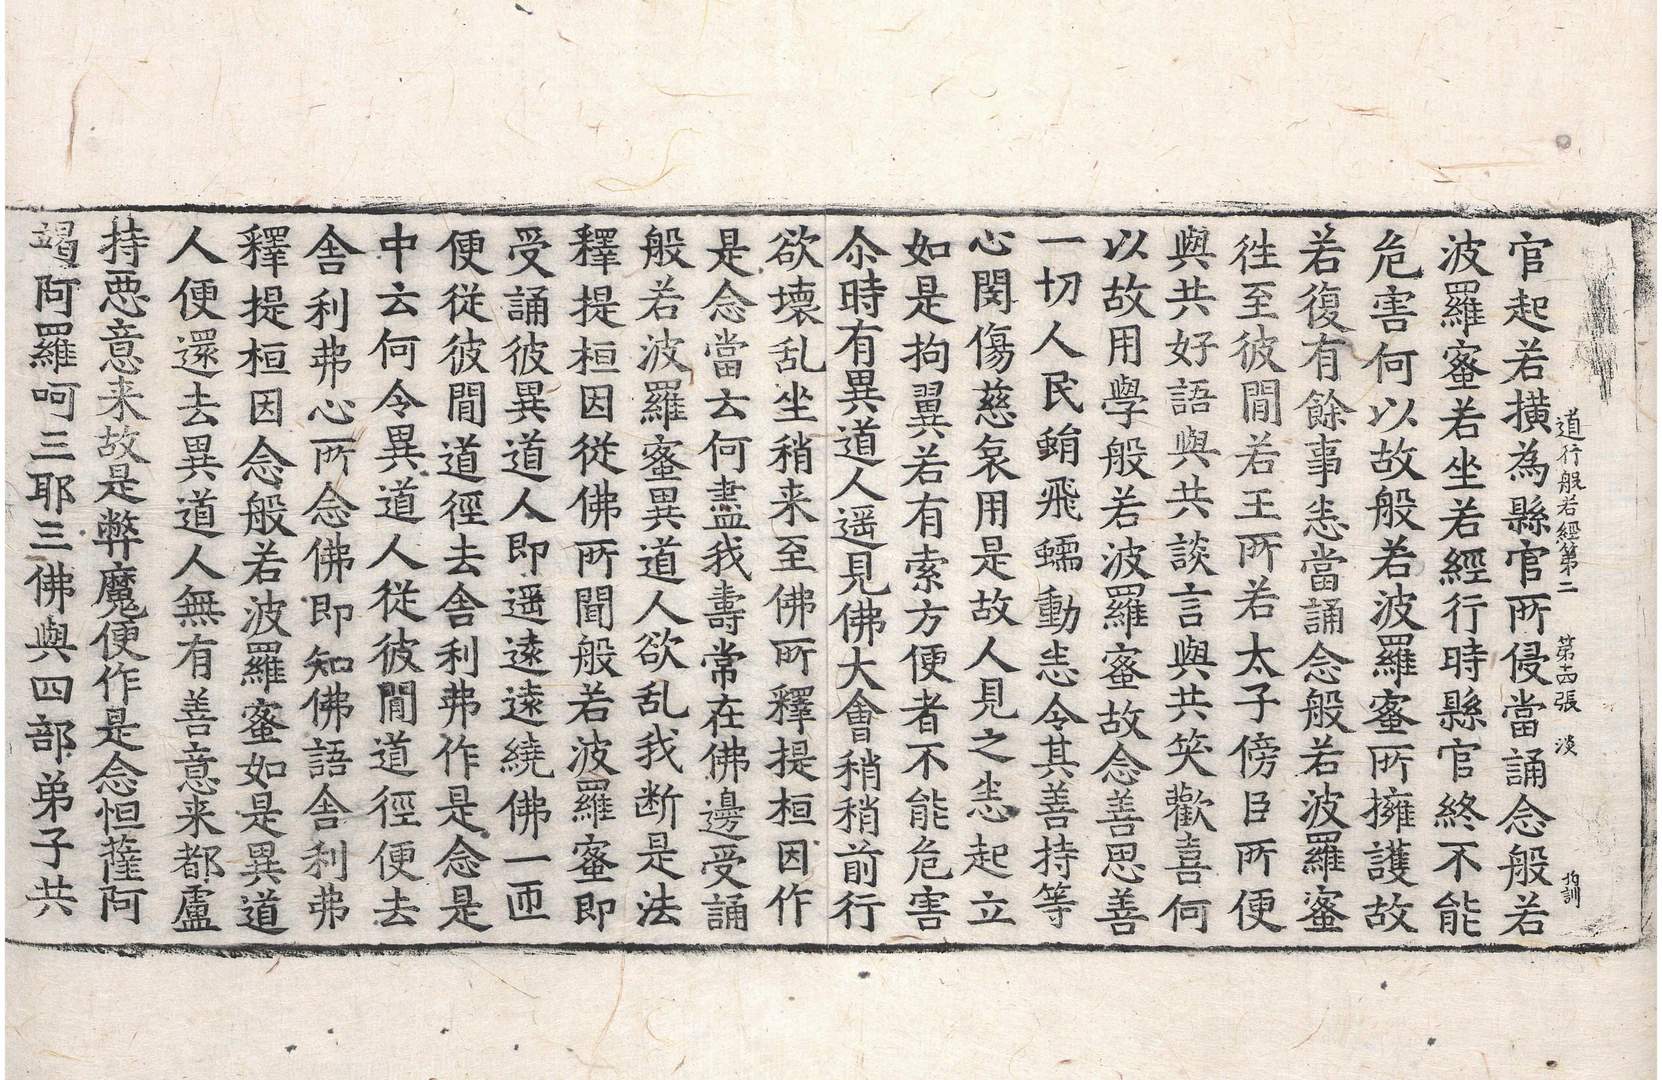 道行般若經第二 第十四張 淡
官起若橫為縣官所侵當誦念般若
波羅蜜若坐若經行時縣官終不能
危害何以故般若波羅蜜所擁護故
若復有餘事恚當誦念般若波羅蜜
徃至彼間若王所若太子傍臣所便
與共好語與共談言與共笑歡喜何
以故用學般若波羅蜜故念善思善
一切人民蛕飛蠕動恚令其善持等
心閔傷慈哀用是故人見之恚起立
如是拘翼若有索方便者不能危害
尒時有異道人遥見佛大會稍稍前行
欲壞乱坐稍来至佛所釋提桓因作
是念當云何盡我壽常在佛邊受誦
般若波羅蜜異道人欲乱我断是法
釋提桓因從佛所聞般若波羅蜜即
受誦彼異道人即遥遠繞佛一匝
便從彼間道徑去舍利弗作是念是
中云何令異道人從彼間道徑便去
舍利弗心所念佛即知佛語舍利弗
釋提桓因念般若波羅蜜如是異道
人便還去異道人無有善意来都盧
持惡意来故是弊魔便作是念怛薩阿
竭阿羅呵三耶三佛與四部弟子共